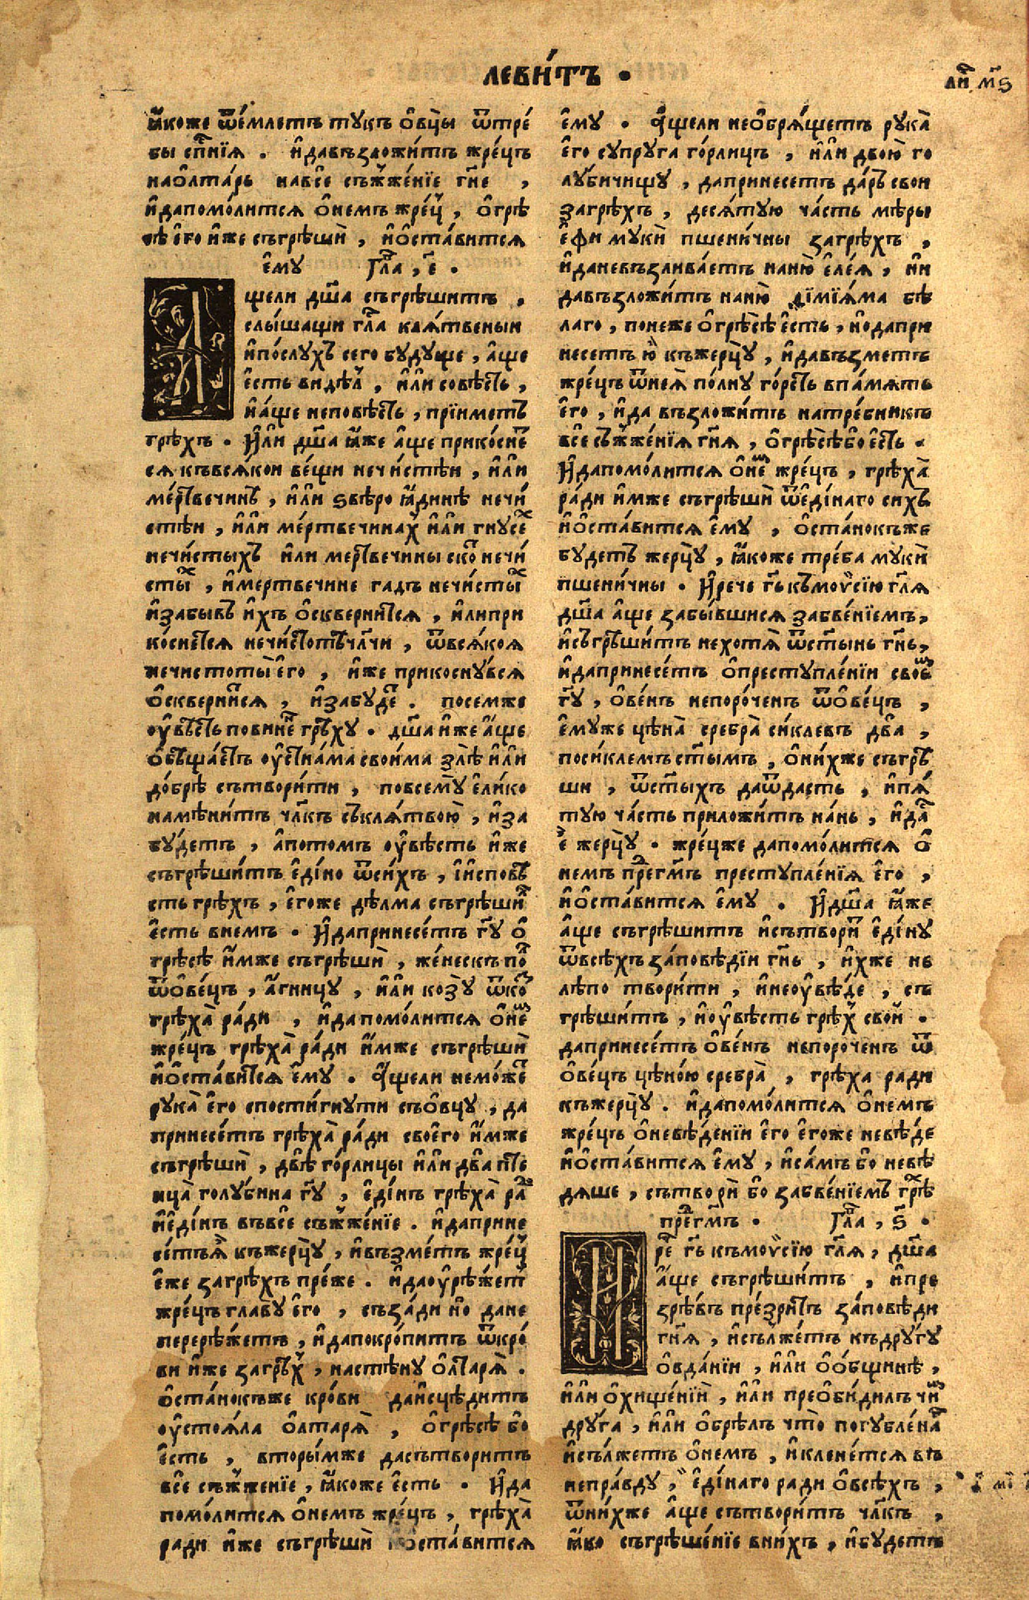 леві́тъ .
ꙗ҆́коже ѿе́млетъ тукъ ѻ҆вцы̀ ѿтре́
бы сп҃нїѧ . и҆давъзложи́тъ жре́цъ
наѻ҆лта́рь навсѐ съжже́нїе гн҃е ,
и҆дапомо́литсѧ ѻ҆немъ жре́цъ , ѻ҆грѣ
сѣ є҆го и҆́же съгрѣшѝ , и҆ѻ҆ста́витсѧ
є҆му гл҃а , є҃ .
Ащели дш҃а съгрѣши́тъ ,
слы́шащи гл҃а клѧ́твеныи
и҆по́слухъ сего бу́дуще , а҆́ще
є҆сть ви́дѣлъ , и҆́ли со́вѣсть ,
и҆а҆́ще неповѣ́сть , прїи́метъ
грѣ́хъ . И҆́ли дш҃а ꙗ҆́же а҆́ще прико́снетъ
сѧ къвсѧ́кои ве́щи нечи́стѣи , и҆́ли
ме́ртвечинѣ , и҆́ли ѕвѣ́ро ꙗ҆́динѣ нечи́
стѣи , и҆́ли ме́ртвечинахъ и҆́ли гнусе
нечи́стыхъ и҆ли ме́ртвечины ско нечи́
сты , и҆́мертвечине гадъ нечи́сты
и҆забы́въ и҆́хъ ѻ҆скверни́тсѧ , и҆́липри
ко́снетсѧ нечи́стотѣчл҃чи , ѿвсѧ́коѧ
нечистоты̀ є҆го , и҆́же прикоснувсѧ
ѻ҆скверни́тсѧ , и҆забу́де . посемже
ѹ҆вѣ́сть пови́не грѣху . дш҃а и҆́же а҆́ще
ѻ҆бѣща́етъ ѹ҆стнама свои́ма злѣ и҆́ли
до́брѣ сътвори́ти , повсему є҆ли́ко
намѣ́нитъ чл҃къ съклѧ́твою , и҆за
бу́детъ , а҆пото́мъ ѹ҆вѣ́сть и҆́же
съгрѣши́тъ є҆ди́но ѿси́хъ , и҆и҆сповѣ
сть грѣ́хъ , є҆го́же дѣ́лма съгрѣши
є҆сть внемъ . И҆дапринесе́тъ гв҃у ѻ҆
грѣсѣ и҆́мже съгрѣшѝ , же́нескъ по
ѿѻ҆ве́цъ , а҆́гницу , и҆́ли козу ѿко
грѣха̀ ра́ди , и҆дапомо́литсѧ ѻ҆не
жре́цъ грѣха̀ ра́ди и҆́мже съгрѣшѝ
и҆ѻ҆ста́витсѧ є҆му . А҆́щели немо́же
рука̀ є҆го спости́гнути съѻ҆вцу , да
принесе́тъ грѣха̀ ра́ди своего и҆́мже
съгрѣшѝ , двѣ го́рлицы и҆́ли два пте
нца̀ голуби́на гв҃у , є҆ди́нъ грѣха̀ ра
и҆є҆ди́нъ въвсе съжже́нїе . и҆даприне
се́тъѧ къжерцу̀ , и҆възме́тъ жре́цъ
є҆́же загрѣ́хъ пре́же . и҆даѹ҆рѣ́жетъ
жре́цъ главу̀ є҆го , съза́ди но̀ дане
перерѣ́жетъ , и҆дапокро́питъ ѿкро
ви и҆́же загрѣ́хъ , настѣ́ну ѻ҆лтарѧ̀ .
ѻ҆ста́нокъже кро́ви даи҆сцѣ́дитъ
ѹ҆стоѧ́ла ѻ҆лтарѧ̀ , ѻ҆грѣсѣ бо
є҆сть , вторы́мже дасътвори́тъ
все съжже́нїе , ꙗ҆́коже є҆сть . И҆да
помо́литсѧ ѻ҆немъ жре́цъ , грѣха̀
ради и҆́же съгрѣшѝ и҆ѻ҆ста́витсѧ
є҆му . А҆́щели неѻ҆брѧ́щетъ рука̀
є҆го супру́га го́рлицъ , и҆́ли двою̀ го
луби́чищу , дапринесе́тъ да́ръ свои
загрѣ́хъ , десѧ́тую ча́сть мѣ́ры
є҆́фи мукѝ пшени́чны загрѣ́хъ ,
и҆даневъзлива́етъ наню̀ є҆ле́ѧ , ни
давъзложи́тъ наню̀ ди́мїѧма бѣ
лаго , поне́же ѻ҆грѣсѣ є҆сть , и҆даприн
несе́тъ ю҆̀ къжерцу̀ , и҆давъзме́тъ
жре́цъ ѿнеѧ̀ по́лну го́рсть впа́мѧть
є҆го , и҆да възложи́тъ натре́бникъ
все съжже́нїѧ гн҃ѧ , ѻ҆грѣсѣбо є҆сть .
И҆дапомо́литсѧ ѻ҆не жре́цъ , грѣха̀
ра́ди и҆́мже съгрѣшѝ ѿє҆ди́наго сихъ
и҆ѻ҆ста́витсѧ є҆му , ѻ҆ста́нокъже
бу́детъ жерцу̀ , ꙗ҆́коже тре́ба мукѝ
пшени́чны . И҆рече гь҃ къмоѵсїю гл҃ѧ
дш҃а а҆́ще забы́вшисѧ забве́нїемъ ,
и҆съгрѣши́тъ нехотѧ̀ ѿст҃ынь гн҃ь ,
и҆дапринесе́тъ ѻ҆преступле́нїи свое
гв҃у , ѻ҆ве́нъ непоро́ченъ ѿѻ҆ве́цъ ,
є҆му́же цѣна̀ сребра̀ си́клевъ два ,
поси́клемъ ст҃ымъ , ѻ҆ни́хже съгрѣ
ши , ѿст҃ыхъ даѿда́сть , и҆пѧ́
тую ча́сть приложи́тъ на́нь , и҆да
е҆̀ жерцу̀ . жре́цже дапомо́литсѧ ѻ҆
немъ преступле́нїѧ є҆го ,
и҆ѻ҆ста́витсѧ є҆му . И҆дш҃а ꙗ҆́же
а҆́ще съгрѣши́тъ и҆сътвори є҆ди́ну
ѿвсѣхъ за́повѣдїи гн҃ь , и҆́хже не
лѣпо твори́ти , и҆неѹ҆вѣ́де , съ
грѣши́тъ , и҆ѹ҆вѣ́сть грѣ́хъ свои .
дапринесе́тъ ѻ҆ве́нъ непоро́ченъ ѿ
ѻ҆ве́цъ цѣно́ю сребра̀ , грѣ́ха ради
къжерцу̀ . и҆дапомо́литсѧ ѻ҆немъ
жре́цъ ѻ҆невѣ́денїи є҆го є҆го́же невѣ́де
и҆ѻ҆ста́витсѧ є҆му , и҆са́мъ бо невѣ́
дѧше , сътвори бо забве́нїемъ грѣ
гл҃а , ѕ҃ .
Рє гь҃ къмоѵсїю гл҃ѧ , дш҃а
а҆́ще съгрѣши́тъ , и҆пре
зрѣ́въ презри́тъ за́повѣди
гн҃ѧ , и҆сълже́тъ къдру́гу
ѻ҆вда́нїи , и҆́ли ѻ҆ѻ҆́бщинѣ ,
и҆́ли ѻ҆хище́нїи , и҆́ли преѻ҆би́дилъ чи
дру́га , и҆́ли ѻ҆брѣ́лъ что̀ погубле́на
и҆сълже́тъ ѻ҆немъ , и҆клене́тсѧ въ
непра́вду , є҆ди́наго ради ѻ҆всѣхъ ,
ѿни́хже а҆́ще сътвори́тъ чл҃къ ,
ꙗ҆́ко съгрѣше́нїе вни́хъ , и҆бу́детъ